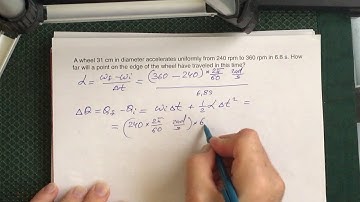 A wheel 31 cm in diameter accelerates uniformly from 240 rpm to 360 rpm in 6.8 s. How
far will a point on the edge of the wheel have traveled in this time?
α = (ω_f − ω_i) / Δt = (360 − 240) × 2π/60 rad/s / 6.8s
ΔΘ = Θ_f − Θ_i = ω_i Δt + 1/2 α Δt² =
= (240 × 2π/60 rad/s) × 6